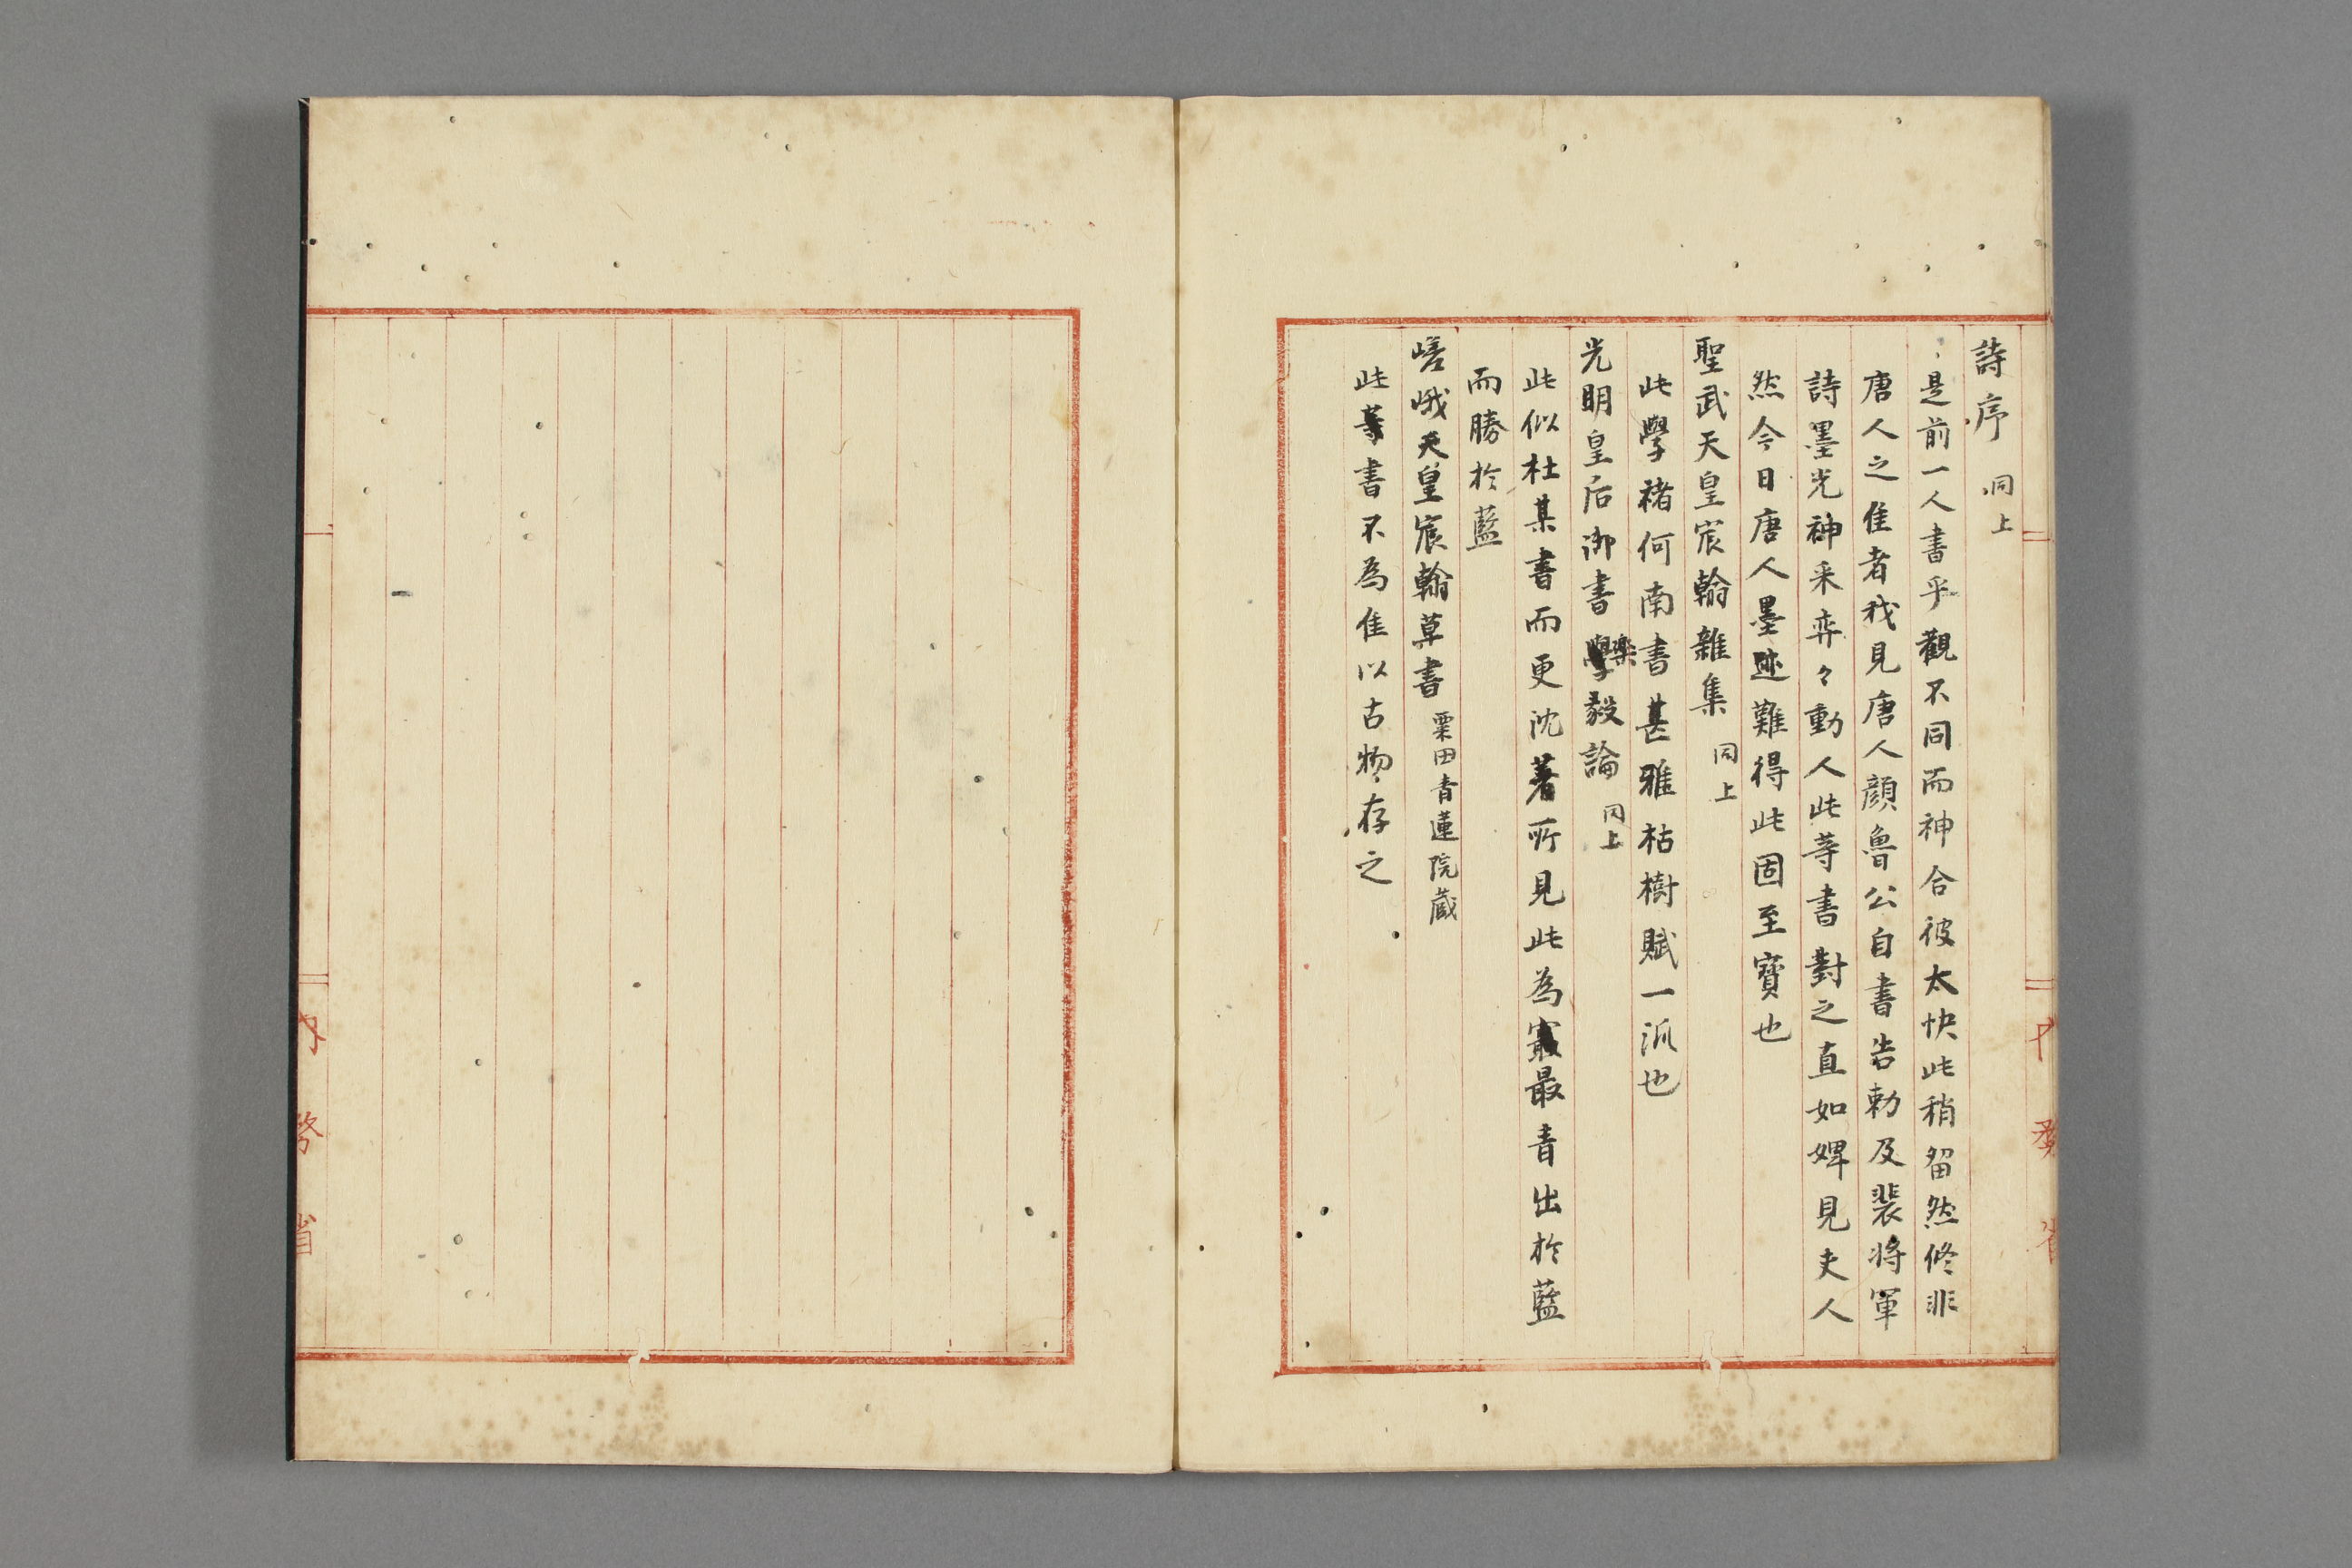 詩序 同上
是前一人書乎觀不同而神合彼太快此稍留然終非
唐人之佳者我見唐人顔魯公自書告勅及裴将軍
詩墨光神采奕々動人此等書對之直如婢見夫人
然今日唐人墨迹難得此固至寳也
聖武天皇宸翰雜集 同上
此學褚何南書甚雅枯樹賦一派也
光明皇后御書樂毅論 同上
此似杜某書而更沈著所見此為最青出於藍
而勝於藍
嵯峨天皇宸翰草書 粟田青蓮院蔵
此等書不為佳以古物存之
内務省